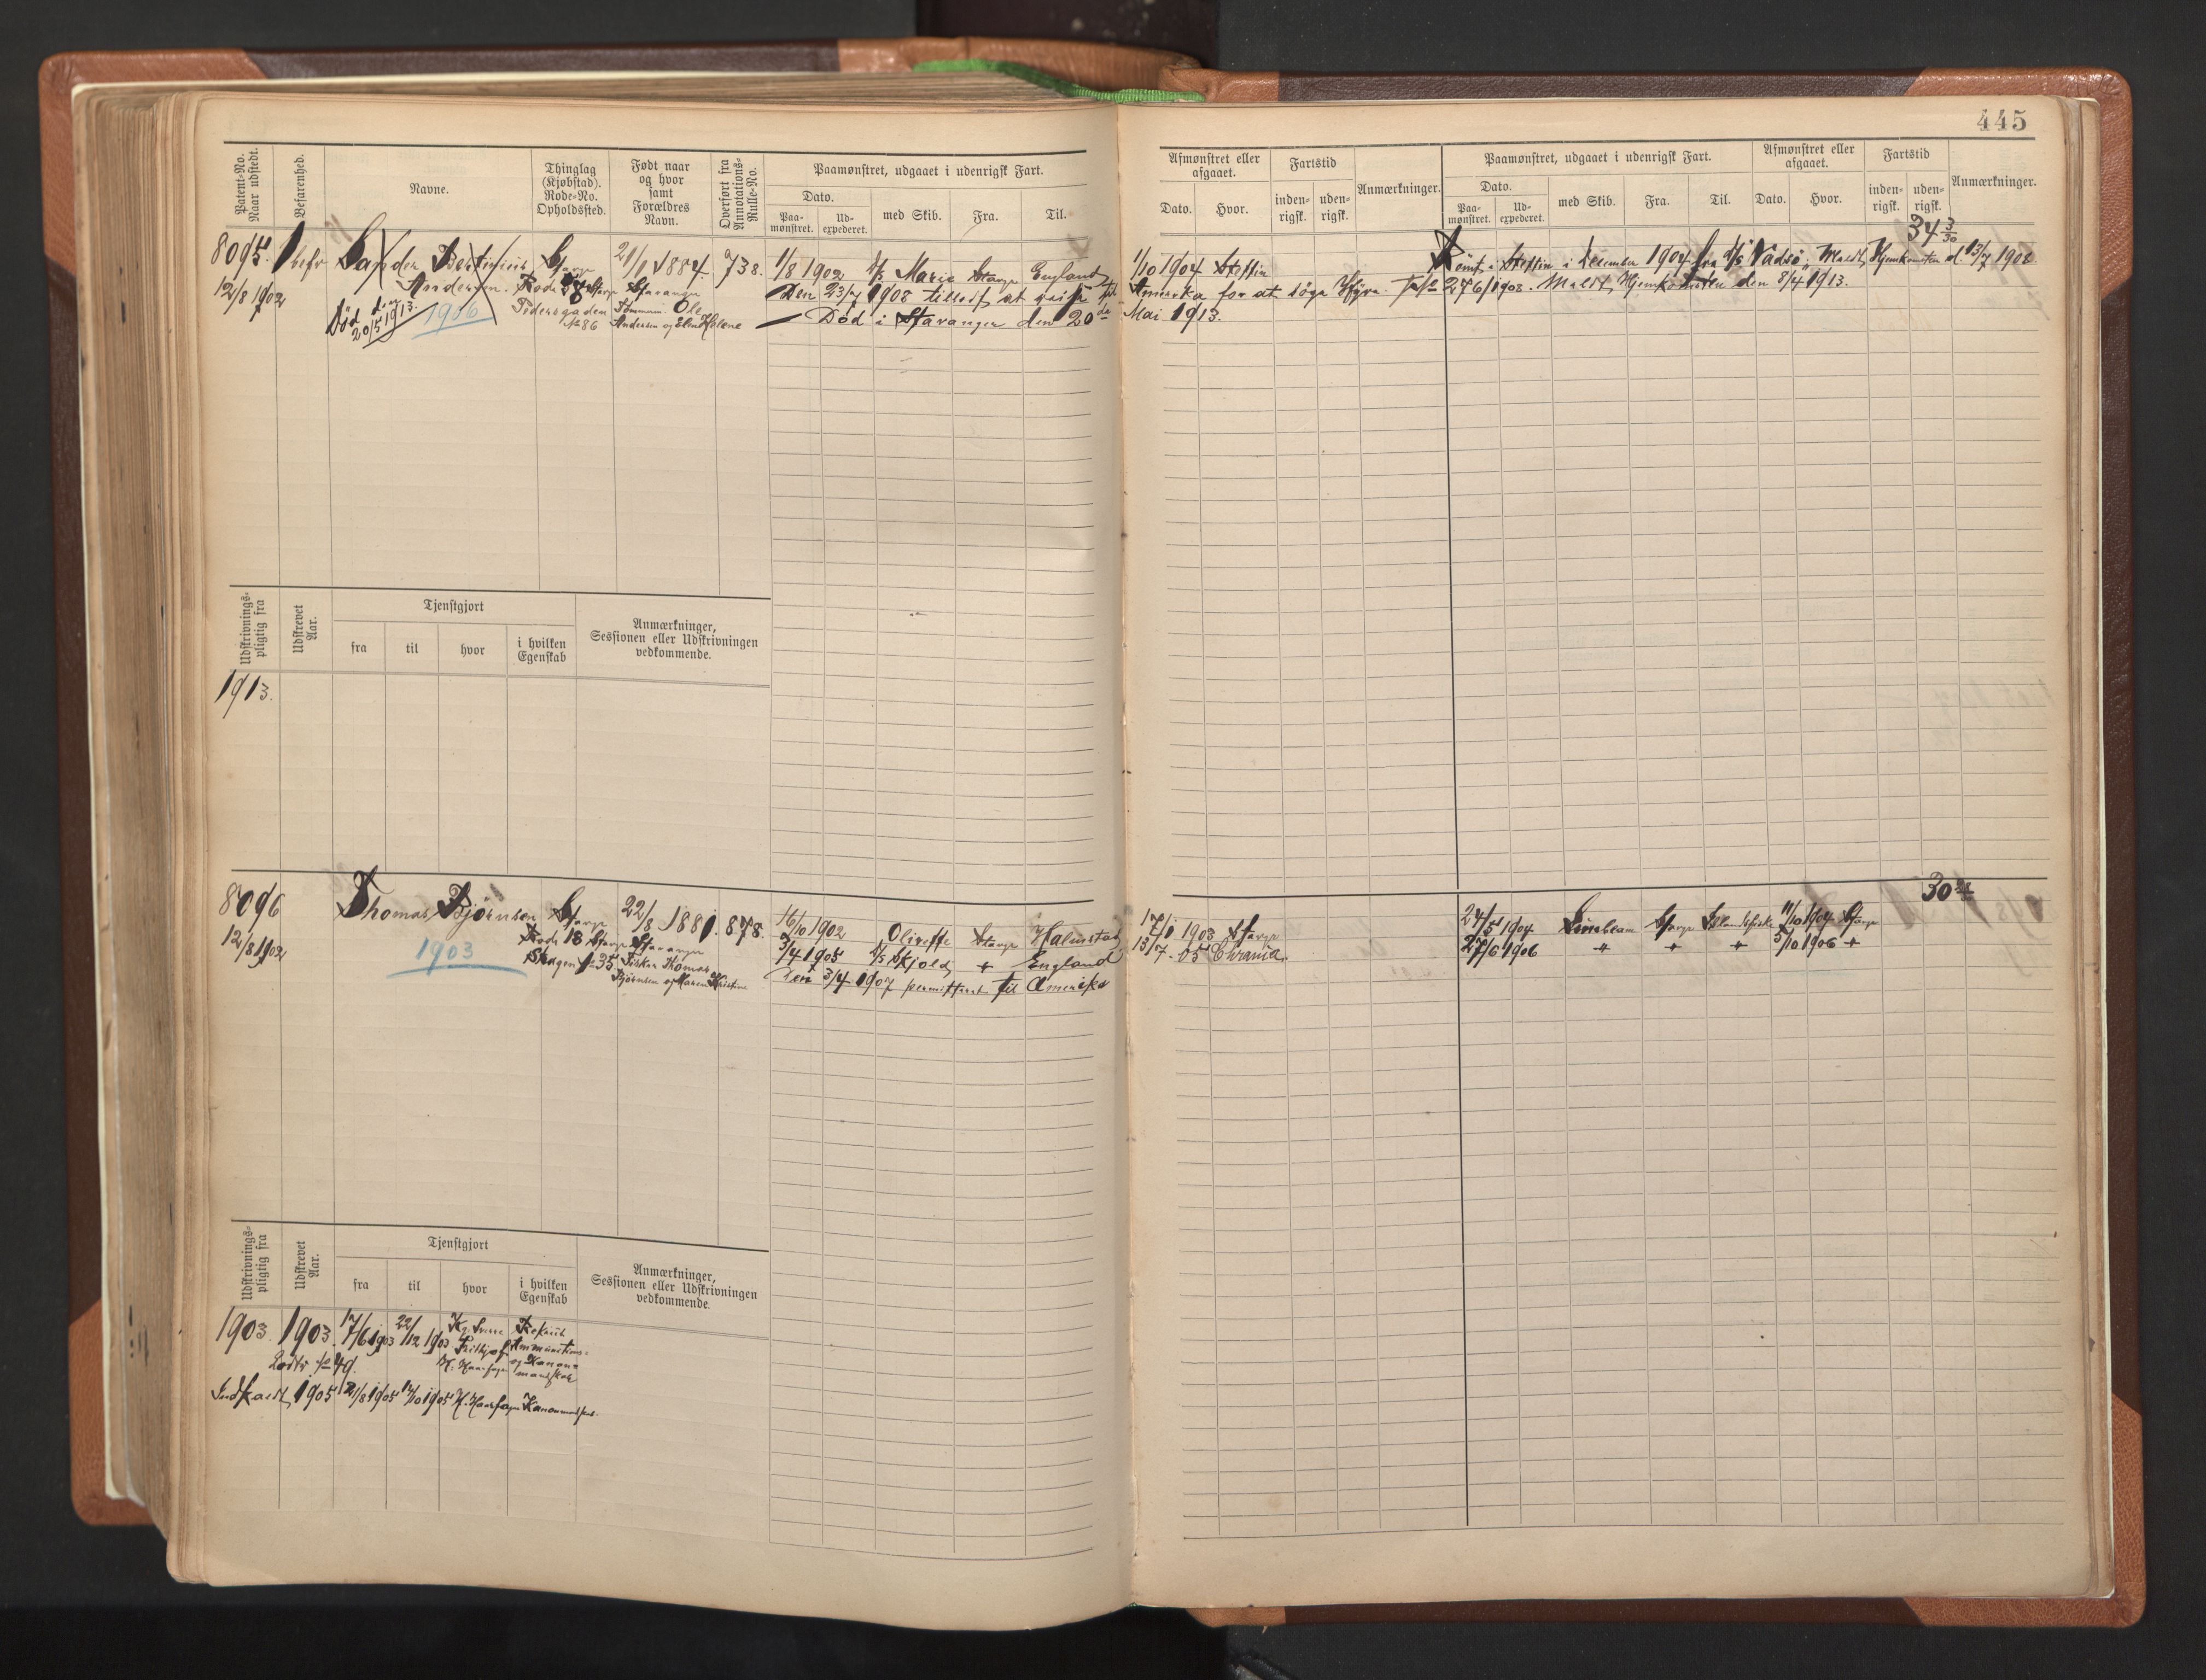 445
Patent-No. Naar udstedt.
Befarenhed.
Navne.
Thinglag (Kjøbstad). Rode-No. Opholdssted.
Født naar og hvor samt Forældres Navn.
Overført fra Annotations-Rulle-No.
Paamønstret, udgaaet i udenrigsk Fart.
Dato.
Paa-mønstret.
Ud-expederet.
med Skib.
Fra.
Til.
Afmønstret eller afgaaet.
Dato.
Hvor.
Fartstid
inden-rigsk.
uden-rigsk.
Anmærkninger.
Paamønstret, udgaaet i udenrigsk Fart.
Dato.
Paa-mønstret.
Ud-expederet.
med Skib.
Fra.
Til.
Afmønstret eller afgaaet.
Dato.
Hvor.
Fartstid
inden-rigsk.
uden-rigsk.
Anmærkninger.
34 3/30
8095. 21/1 1884. 738. 1/8 1902 D/S Marie Stavgr England 1/10 1904 Stettin Römt i Stettin i December 1904 fra D/S Vadsö. Meldt Hjemkomsten d. 13/7 1908
12/8 1902 Andersen. Rode Stavgr Stavanger Den 23/7 1908 tilladt at reise til Amerika for at söge Hyre. 276/1908. Meldt Hjemkomsten den 8/4 1913.
Död den 20/5 1913. 1906 Pedersgaden No 86 Tömmerm. Ole Andersen og Elen Helene
Död i Stavanger den 20de Mai 1913.
Udskrivnings-pligtig fra
Udskrevet Aar.
Tjenstgjort
fra
til
hvor
i hvilken Egenskab
Anmærkninger, Sessionen eller Udskrivningen vedkommende.
1913.
30
8096 Thomas Björnsen Stavgr 22/8 1881. 878. 16/10 1902 Olivette Stavgr Halmstad 17/1 1903 Stavgr 24/5 1904 Stavgr 11/10 1904 Stavgr
12/8 1902 1903 Rode 18 Stavgr Stavanger 3/4 1905 D/S Skjold + England 13/7 - 05 Chrania. 27/6 1906 " + + 3/10 1906 +
Skagen No 35 Fisker Thomas Björnsen og Maren Kristine
Den 3/4 1907 permitteret til Amerika
Udskrivnings-pligtig fra
Udskrevet Aar.
Tjenstgjort
fra
til
hvor
i hvilken Egenskab
Anmærkninger, Sessionen eller Udskrivningen vedkommende.
1903. 1903. 17/6 1903 22/12 1903 Rekrut
Fritjof Ammunitions-
Lodtr. No 49. H. Haarfagre og Kanon-
mandskab
Indkaldt 1905 21/8 1905 17/10 1905 H. Haarfagre Kanonmandskab.